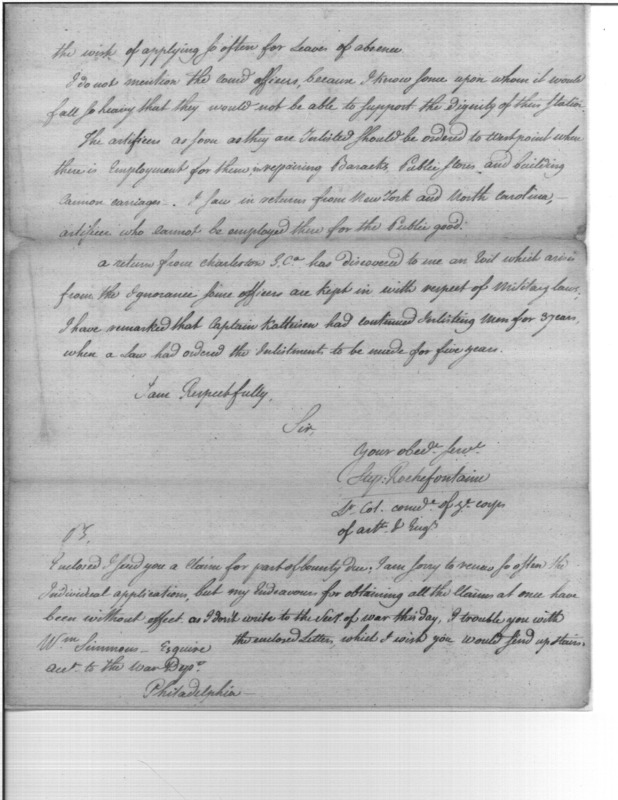 the wish of applying so often for Leaves of absence.
I do not mention the Comd officers, because I know some upon whom it would
fall so heavy that they would not be able to support the dignity of their Station.
The artificers as soon as they are Inlisted should be ordered to West point when
there is Employment for them in repairing Baracks, Public Stores and building
Cannon carriages. I saw in returns from New York and North Carolina,
artificer who cannot be employed there for the Public good.
a return from Charleston S. Ca has discovered to me an Evil which arises
from the Ignorance some officers are kept in with respect of Military laws,
I have remarked that Captain Kalteisen had continued Inlisting Men for 3 years,
when a Law had ordered the Inlistments to be made for five years.
I am Respectfully,
Sir,
Your obedt Servt
Step: Rochefontaine
Lt Col. comdt of ye corps
of arty & Engrs
P.S.
Enclosed I send you a Claim for part of bounty due, I am sorry to renew so often the
Individual applications, but my Endeavours for obtaining all the Claims at once have
been without effect. as I don't write to the Secy of war this day, I trouble you with
the enclosed Letter, which I wish you would send up stairs.
Wm Simmons - Esquire
acct to the War Dept
Philadelphia